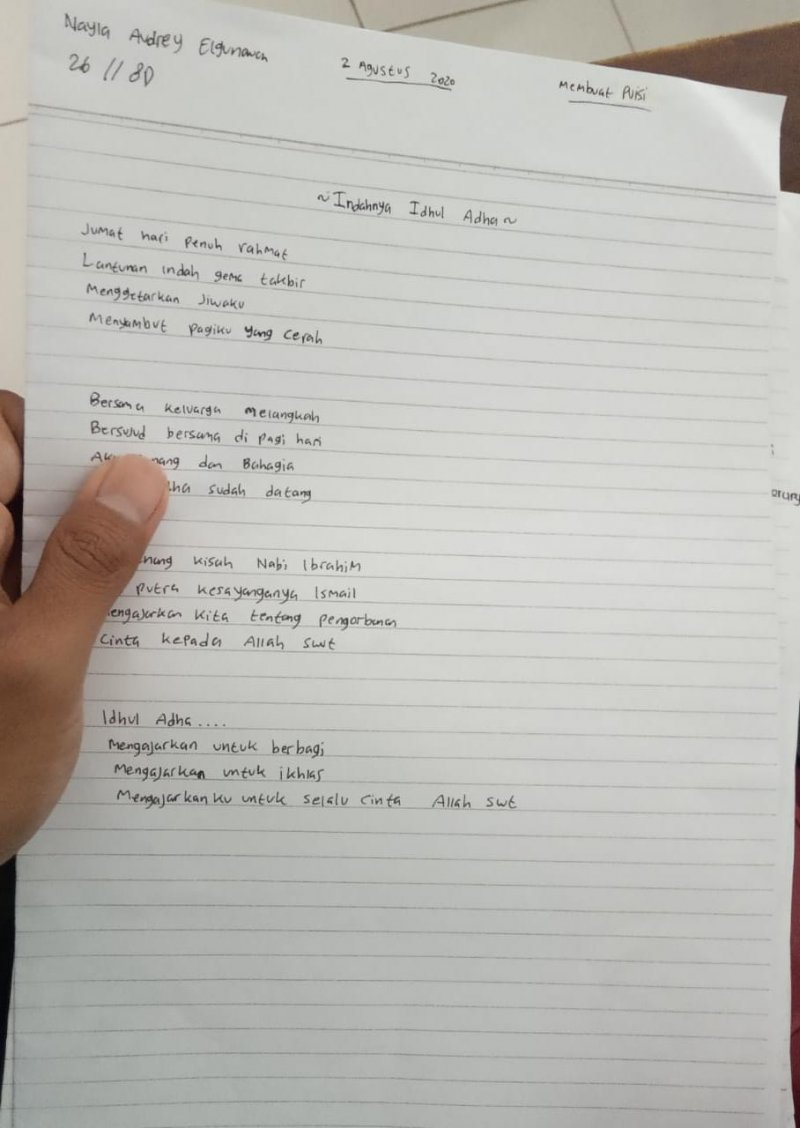 Nayla Audrey Elgunawan
26 // 8D
2 Agustus 2020
Membuat Puisi
~Indahnya Idhul Adha~
Jumat hari penuh rahmat
Lantunan indah gema takbir
Menggetarkan Jiwaku
Menyambut pagiku yang cerah
Bersama keluarga melangkah
Bersujud bersama di pagi hari
dan Bahagia
sudah datang
kisah Nabi Ibrahim
putra kesayanganya Ismail
engajarkan kita tentang pengorbanan
Cinta kepada Allah swt
Idhul Adha....
Mengajarkan untuk berbagi
Mengajarkan untuk ikhlas
Mengajarkanku untuk selalu cinta Allah swt